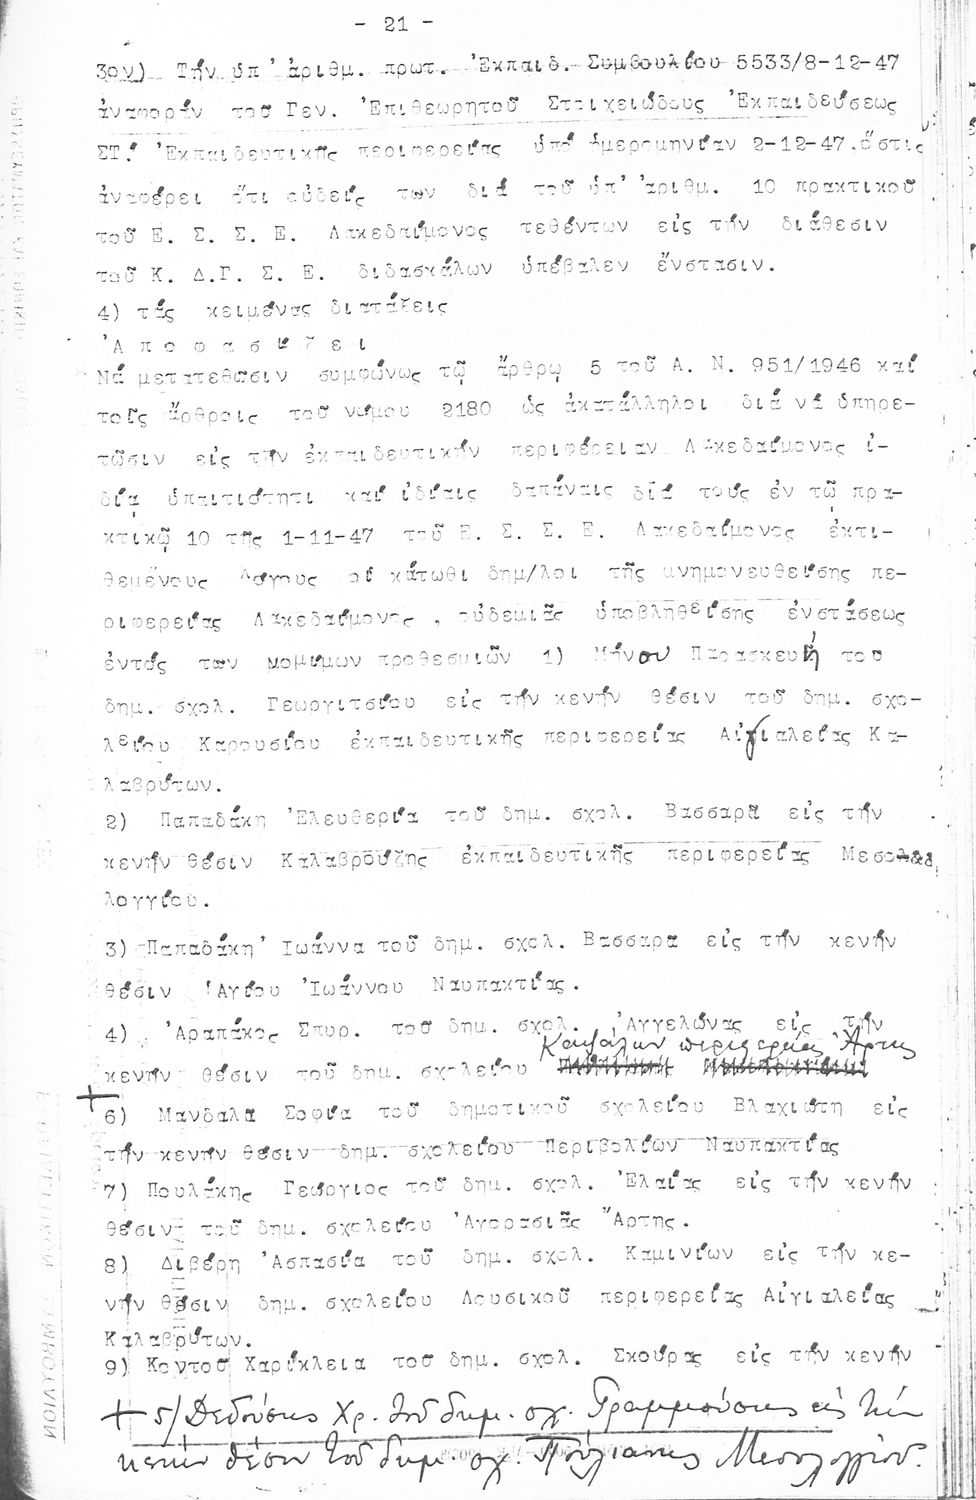 - 21 -
3ον) Τήν ὑπ' ἀριθμ. πρωτ. Ἐκπαιδ. Συμβουλίου 5533/8-12-47
ἀναφοράν τοῦ Γεν. Ἐπιθεωρητοῦ Στοιχειώδους Ἐκπαιδεύσεως
ΣΤ! Ἐκπαιδευτικῆς περιφερείας ὑπό ἡμερομηνίαν 2-12-47.ὅστις
ἀναφέρει ὅτι οὐδείς των διά τοῦ ὑπ' ἀριθμ. 10 πρακτικοῦ
τοῦ Ε. Σ. Σ. Ε. Λακεδαίμονος τεθέντων εἰς τήν διάθεσιν
τοῦ Κ. Δ.Γ. Σ. Ε. διδασκάλων ὑπέβαλεν ἔνστασιν.
4) τάς κειμένας διατάξεις
Ἀ π ο φ α σ ί ζ ε ι
Νά μετατεθῶσιν συμφώνως τῷ ἄρθρῳ 5 τοῦ Α. Ν. 951/1946 καί
τοῖς ἄρθροις τοῦ νόμου 2180 ὡς ἀκατάλληλοι διά νά ὑπηρε-
τῶσιν εἰς τήν ἐκπαιδευτικήν περιφέρειαν Λακεδαίμονος ἰ-
δίᾳ ὑπαιτιότητι καί ἰδίαις δαπάναις διά τούς ἐν τῷ πρα-
κτικῷ 10 τῆς 1-11-47 τοῦ Ε. Σ. Σ. Ε. Λακεδαίμονος ἐκτι-
θεμένους λόγους οἱ κάτωθι δημ/λοι τῆς μνημονευθείσης πε-
ριφερείας Λακεδαίμονος , οὐδεμιᾶς ὑποβληθείσης ἐνστάσεως
ἐντός των νομίμων προθεσμιῶν 1) Μήνου Παρασκευή του
δημ. σχολ. Γεωργιτσίου εἰς τήν κενήν θέσιν τοῦ δημ. σχο-
λείου Καρουσίου ἐκπαιδευτικῆς περιφερείας Αἰγιαλείας Κα-
λαβρύτων.
2) Παπαδάκη Ἐλευθερία τοῦ δημ. σχολ. Βασσαρᾶ εἰς τήν
κενήν θέσιν Καλαβρούζης ἐκπαιδευτικῆς περιφερείας Μεσο
λογγίου.
3) Παπαδάκη Ἰωάννα τοῦ δημ. σχολ. Βασσαρᾶ εἰς τήν κενήν
θέσιν Ἁγίου Ἰωάννου Ναυπακτίας.
4) Ἀραπάκος Σπυρ. τοῦ δημ. σχολ. Ἀγγελώνας εἰς τήν
κενήν θέσιν τοῦ δημ. σχολείου Καμάλων περιφερείας Ἄρτης
+
6) Μανδαλᾶ Σοφία τοῦ δημοτικοῦ σχολείου Βλαχιώτη εἰς
τήν κενήν θέσιν δημ. σχολείου Περιβολίων Ναυπακτίας
7) Πουλάκης Γεώργιος τοῦ δημ. σχολ. Ἐλαίας εἰς τήν κενήν
θέσιν τοῦ δημ. σχολείου Ἀγορασιᾶς Ἄρτης.
8) Διβέρη Ἀσπασία τοῦ δημ. σχολ. Καμινίων εἰς τήν κε-
νήν θέσιν δημ. σχολείου Λουσικοῦ περιφερείας Αἰγιαλείας
Καλαβρύτων.
9) Κοντοῦ Χαρίκλεια τοῦ δημ. σχολ. Σκούρας εἰς τήν κενήν
+ 5/ Δεδούσης Χρ. τοῦ δημ. σχ. Γραμμούσης εἰς τήν
κενήν θέσιν τοῦ δημ. σχ. Πουλιανης Μεσολογγίου.